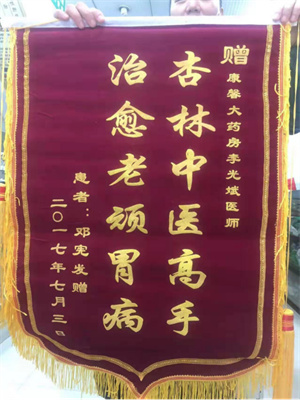 赠
康馨大药房李光斌医师
杏林中医高手
治愈老顽胃病
患者：邓宪发赠
二〇一七年七月三日